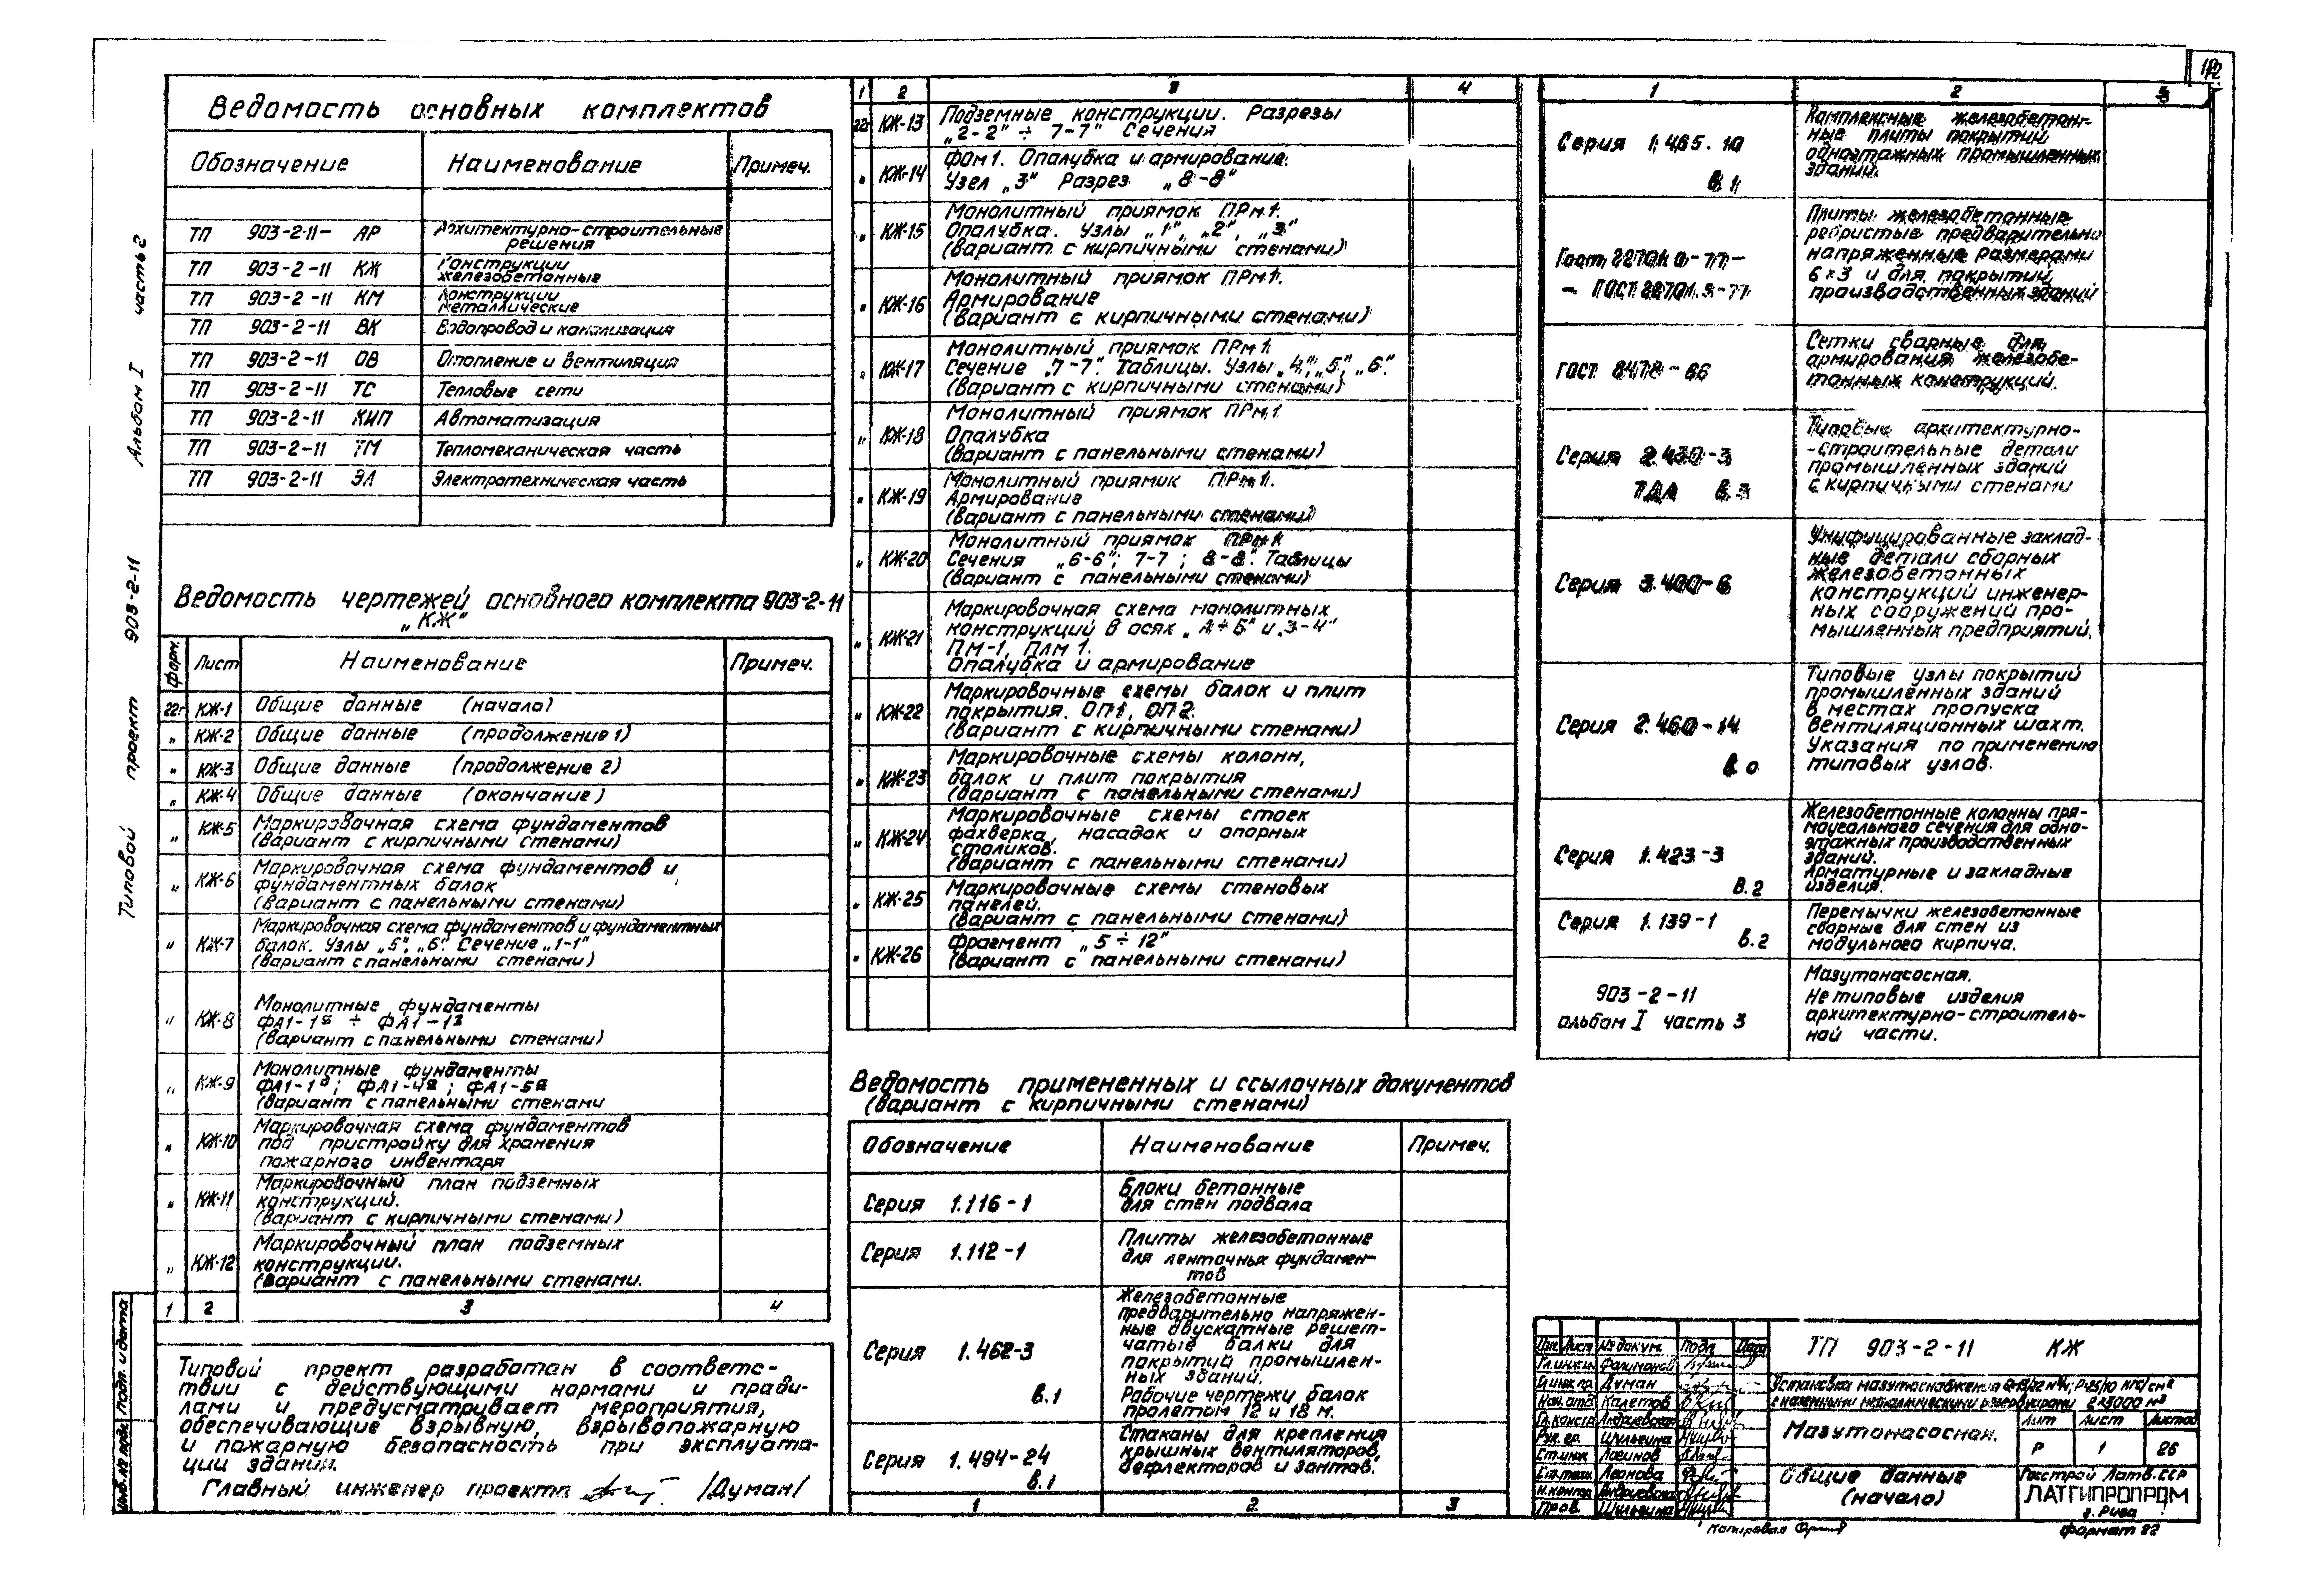 12
Типовой проект 903-2-11 Альбом I часть 2
Ведомость основных комплектов
Обозначение Наименование Примеч.
ТП 903-2-11- АР Архитектурно-строительные
решения
ТП 903-2-11 КЖ Конструкции
железобетонные
ТП 903-2-11 КМ Конструкции
металлические
ТП 903-2-11 ВК Водопровод и канализация
ТП 903-2-11 ОВ Отопление и вентиляция
ТП 903-2-11 ТС Тепловые сети
ТП 903-2-11 КИП Автоматизация
ТП 903-2-11 ТМ Тепломеханическая часть
ТП 903-2-11 ЭЛ Электротехническая часть
Ведомость чертежей основного комплекта 903-2-11
„КЖ"
Форм. Лист Наименование Примеч.
22г КЖ-1 Общие данные (начало)
„ КЖ-2 Общие данные (продолжение 1)
„ КЖ-3 Общие данные (продолжение 2)
„ КЖ-4 Общие данные (окончание)
„ КЖ-5 Маркировочная схема фундаментов
(вариант с кирпичными стенами)
„ КЖ-6 Маркировочная схема фундаментов и
фундаментных балок
(вариант с панельными стенами)
„ КЖ-7 Маркировочная схема фундаментов и фундаментных
балок. Узлы „5", „6". Сечение „1-1"
(вариант с панельными стенами)
„ КЖ-8 Монолитные фундаменты
(вариант с панельными стенами)
„ КЖ-9 Монолитные фундаменты
(вариант с панельными стенами
„ КЖ-10 Маркировочная схема фундаментов
под пристройку для хранения
пожарного инвентаря
„ КЖ-11 Маркировочный план подземных
конструкций.
(вариант с кирпичными стенами)
„ КЖ-12 Маркировочный план подземных
конструкции.
(Вариант с панельными стенами.
1 2 3 4
Типовой проект разработан в соответс-
твии с действующими нормами и прави-
лами и предусматривает мероприятия,
обеспечивающие взрывную, взрывопожарную
и пожарную безопасность при эксплуата-
ции здания.
Главный инженер проекта /Думан/
Инв. № подл. Подп. и дата
1 2 3 4
22г КЖ-13 Подземные конструкции. Разрезы
„2-2" ÷ 7-7" Сечения
„ КЖ-14 ФОм1. Опалубка и армирование.
Узел „3" Разрез „8-8"
„ КЖ-15 Монолитный приямок ПРм1.
Опалубка. Узлы „1", „2", „3"
(вариант с кирпичными стенами)
„ КЖ-16 Монолитный приямок ПРм1.
Армирование
(вариант с кирпичными стенами)
„ КЖ-17 Монолитный приямок ПРм1
Сечение „7-7". Таблицы. Узлы „4", „5", „6".
(вариант с кирпичными стенами)
„ КЖ-18 Монолитный приямок ПРм1
Опалубка
(вариант с панельными стенами)
„ КЖ-19 Монолитный приямок ПРм1.
Армирование
(вариант с панельными стенами)
„ КЖ-20 Монолитный приямок ПРм1
Сечения „6-6"; 7-7 ; 8-8". Таблицы
(вариант с панельными стенами)
„ КЖ-21 Маркировочная схема монолитных
конструкций в осях „А÷Б" и „3-4"
ПМ-1, ПЛМ 1.
Опалубка и армирование
„ КЖ-22 Маркировочные схемы балок и плит
покрытия. ОП1, ОП2.
(вариант с кирпичными стенами)
„ КЖ-23 Маркировочные схемы колонн,
балок и плит покрытия
(вариант с панельными стенами)
„ КЖ-24 Маркировочные схемы стоек
фахверка, насадок и опорных
столиков.
(вариант с панельными стенами)
„ КЖ-25 Маркировочные схемы стеновых
панелей.
(вариант с панельными стенами)
„ КЖ-26 Фрагмент „5÷12"
(вариант с панельными стенами)
Ведомость примененных и ссылочных документов
(вариант с кирпичными стенами)
Обозначение Наименование Примеч.
Серия 1.116-1 Блоки бетонные
для стен подвала
Серия 1.112-1 Плиты железобетонные
для ленточных фундамен-
тов
Серия 1.462-3 в.1 Железобетонные
предварительно напряжен-
ные двускатные решет-
чатые балки для
покрытий промышлен-
ных зданий.
Рабочие чертежи балок
пролетом 12 и 18 м.
Серия 1.494-24 в.1 Стаканы для крепления
крышных вентиляторов,
дефлекторов и зонтов.
1 2 3
1 2 3
Серия 1.465.10 в.11 Комплексные железобетон-
ные плиты покрытий
одноэтажных промышленных
зданий.
Гост 22701.0-77-
- ГОСТ 22701.5-77 Плиты железобетонные
ребристые предварительно
напряженные размерами
6×3 и для покрытий
производственных зданий
ГОСТ 8478-66 Сетки сварные для
армирования железобе-
тонных конструкций.
Серия 2.430-3 ТДА в.3 Типовые архитектурно-
-строительные детали
промышленных зданий
с кирпичными стенами
Серия 3.400-6 Унифицированные заклад-
ные детали сборных
железобетонных
конструкций инженер-
ных сооружений про-
мышленных предприятий.
Серия 2.460-14 в.0 Типовые узлы покрытий
промышленных зданий
в местах пропуска
вентиляционных шахт.
Указания по применению
типовых узлов.
Серия 1.423-3 в.2 Железобетонные колонны пря-
моугольного сечения для одно-
этажных производственных
зданий.
Арматурные и закладные
изделия.
Серия 1.139-1 в.2 Перемычки железобетонные
сборные для стен из
модульного кирпича.
903-2-11
альбом I часть 3 Мазутонасосная.
Нетиповые изделия
архитектурно-строитель-
ной части.
Изм. Лист № докум. Подп. Дата
Гл.инж.ин. Филимонов
Гл.инж.пр. Думан
Нач.отд. Калетов
Гл.констр. Андриевская
Рук.гр. Шульгина
Ст.инж. Логинов
Ст.техн. Леонова
Н.контр. Андриевская
Пров. Шульгина
ТП 903-2-11 КЖ
Установка мазутоснабжения
Мазутонасосная.
Лит Лист Листов
Р 1 26
Общие данные
(начало)
Госстрой Латв.ССР
ЛАТГИПРОПРОМ
г. Рига
Копировал
формат 22